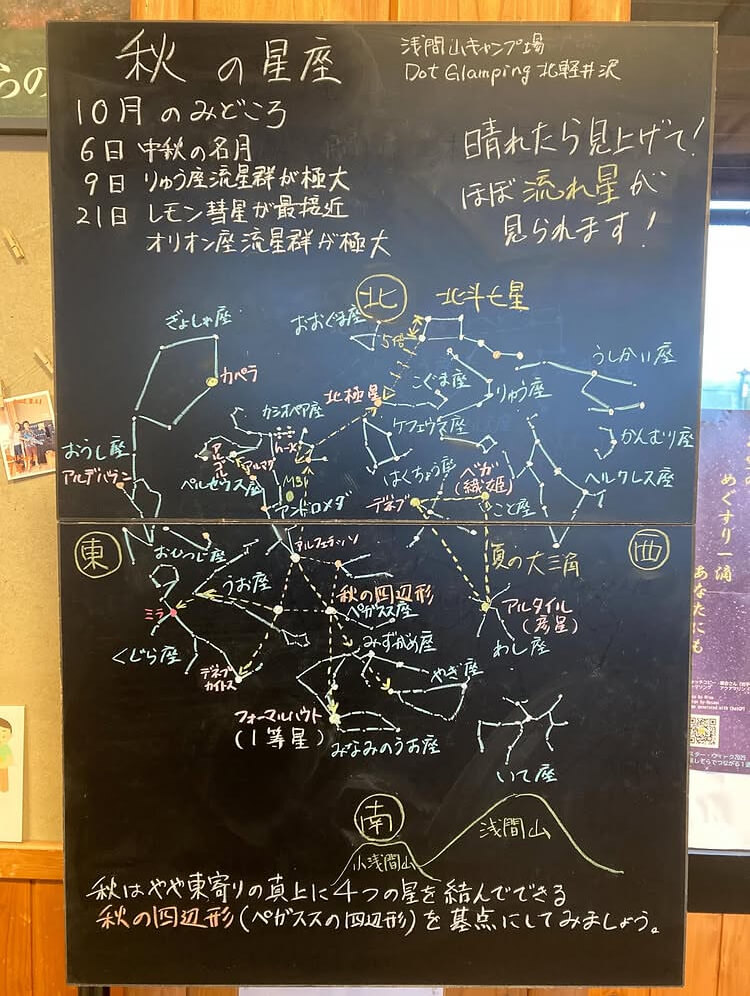 秋の星座
浅間山キャンプ場
Dot Glamping 北軽井沢
10月のみどころ
6日 中秋の名月
9日 りゅう座流星群が極大
21日 レモン彗星が最接近
オリオン座流星群が極大
晴れたら見上げて!
ほぼ流れ星が
見られます!
らの
北
北斗七星
ぎょしゃ座
おおぐま座
5倍
うしかい座
カペラ
こぐま座
りゅう座
北極星
カシオペア座
ケフェウス座
かんむり座
おうし座
h-χ
アルデバラン
ペルセウス座
M31
はくちょう座
ベガ
(織姫)
ヘルクレス座
デネブ
こと座
アンドロメダ
東
西
おひつじ座
アルフェラッツ
夏の大三角
うお座
秋の四辺形
ペガスス座
アルタイル
(彦星)
ミラ
わし座
くじら座
みずがめ座
デネブ
カイトス
やぎ座
フォーマルハウト
(1等星)
みなみのうお座
いて座
南
浅間山
小浅間山
秋はやや東寄りの真上に4つの星を結んでできる
秋の四辺形(ペガススの四辺形)を基点にしてみましょう。
めぐすり一滴
あなたにも